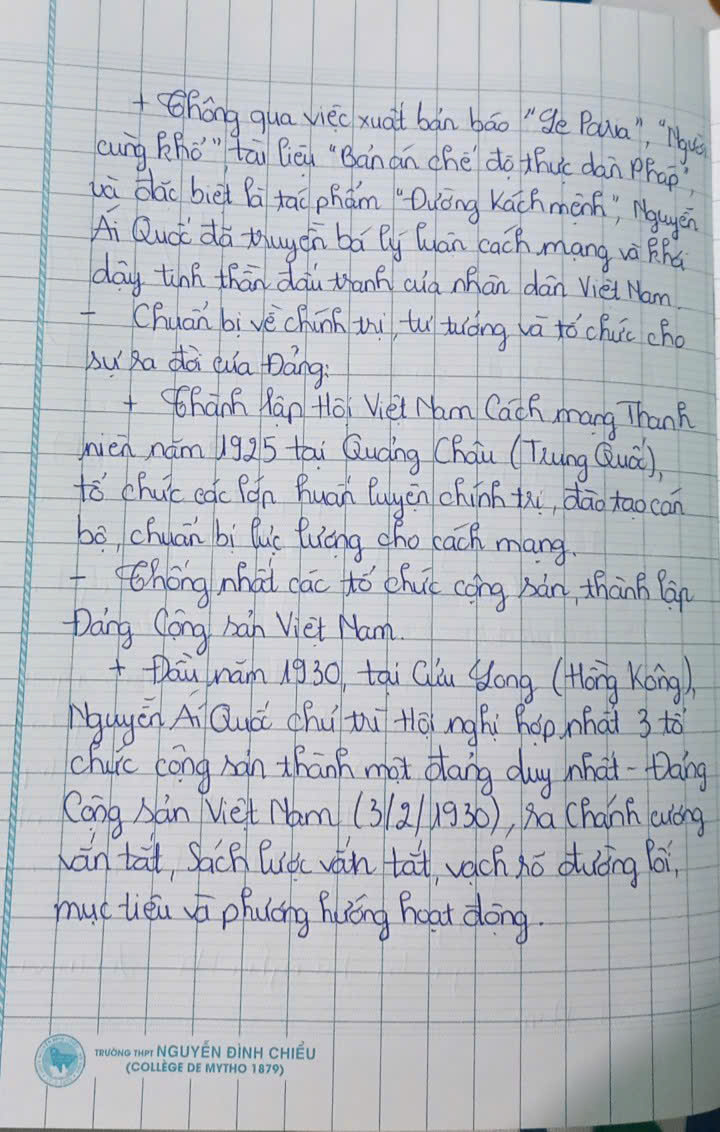 + Thông qua việc xuất bản báo "Le Paria", "Người
cùng khổ", tài liệu "Bản án chế độ thực dân Pháp",
và đặc biệt là tác phẩm "Đường Kách mệnh", Nguyễn
Ái Quốc đã truyền bá lý luận cách mạng và khơi
dậy tinh thần đấu tranh của nhân dân Việt Nam.
- Chuẩn bị về chính trị, tư tưởng và tổ chức cho
sự ra đời của Đảng:
+ Thành lập Hội Việt Nam Cách mạng Thanh
niên năm 1925 tại Quảng Châu (Trung Quốc),
tổ chức các lớp huấn luyện chính trị, đào tạo cán
bộ, chuẩn bị lực lượng cho cách mạng.
- Thống nhất các tổ chức cộng sản, thành lập
Đảng Cộng sản Việt Nam.
+ Đầu năm 1930, tại Cửu Long (Hồng Kông),
Nguyễn Ái Quốc chủ trì Hội nghị hợp nhất 3 tổ
chức cộng sản thành một đảng duy nhất - Đảng
Cộng sản Việt Nam (3/2/1930), ra Chánh cương
vắn tắt, Sách lược vắn tắt, vạch rõ đường lối,
mục tiêu và phương hướng hoạt động.
TRƯỜNG THPT NGUYỄN ĐÌNH CHIỂU
(COLLÈGE DE MYTHO 1879)